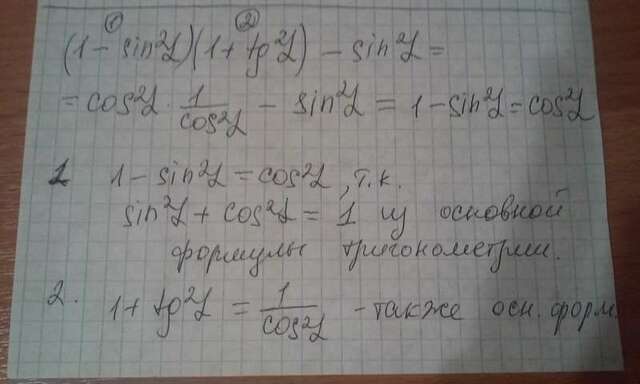 ① ②
(1 - sin²α)(1 + tg²α) - sin²α =
= cos²α · 1/cos²α - sin²α = 1 - sin²α = cos²α
1 1 - sin²α = cos²α, т.к.
sin²α + cos²α = 1 из основной
формулы тригонометрии.
2. 1 + tg²α = 1/cos²α - также осн. форм.